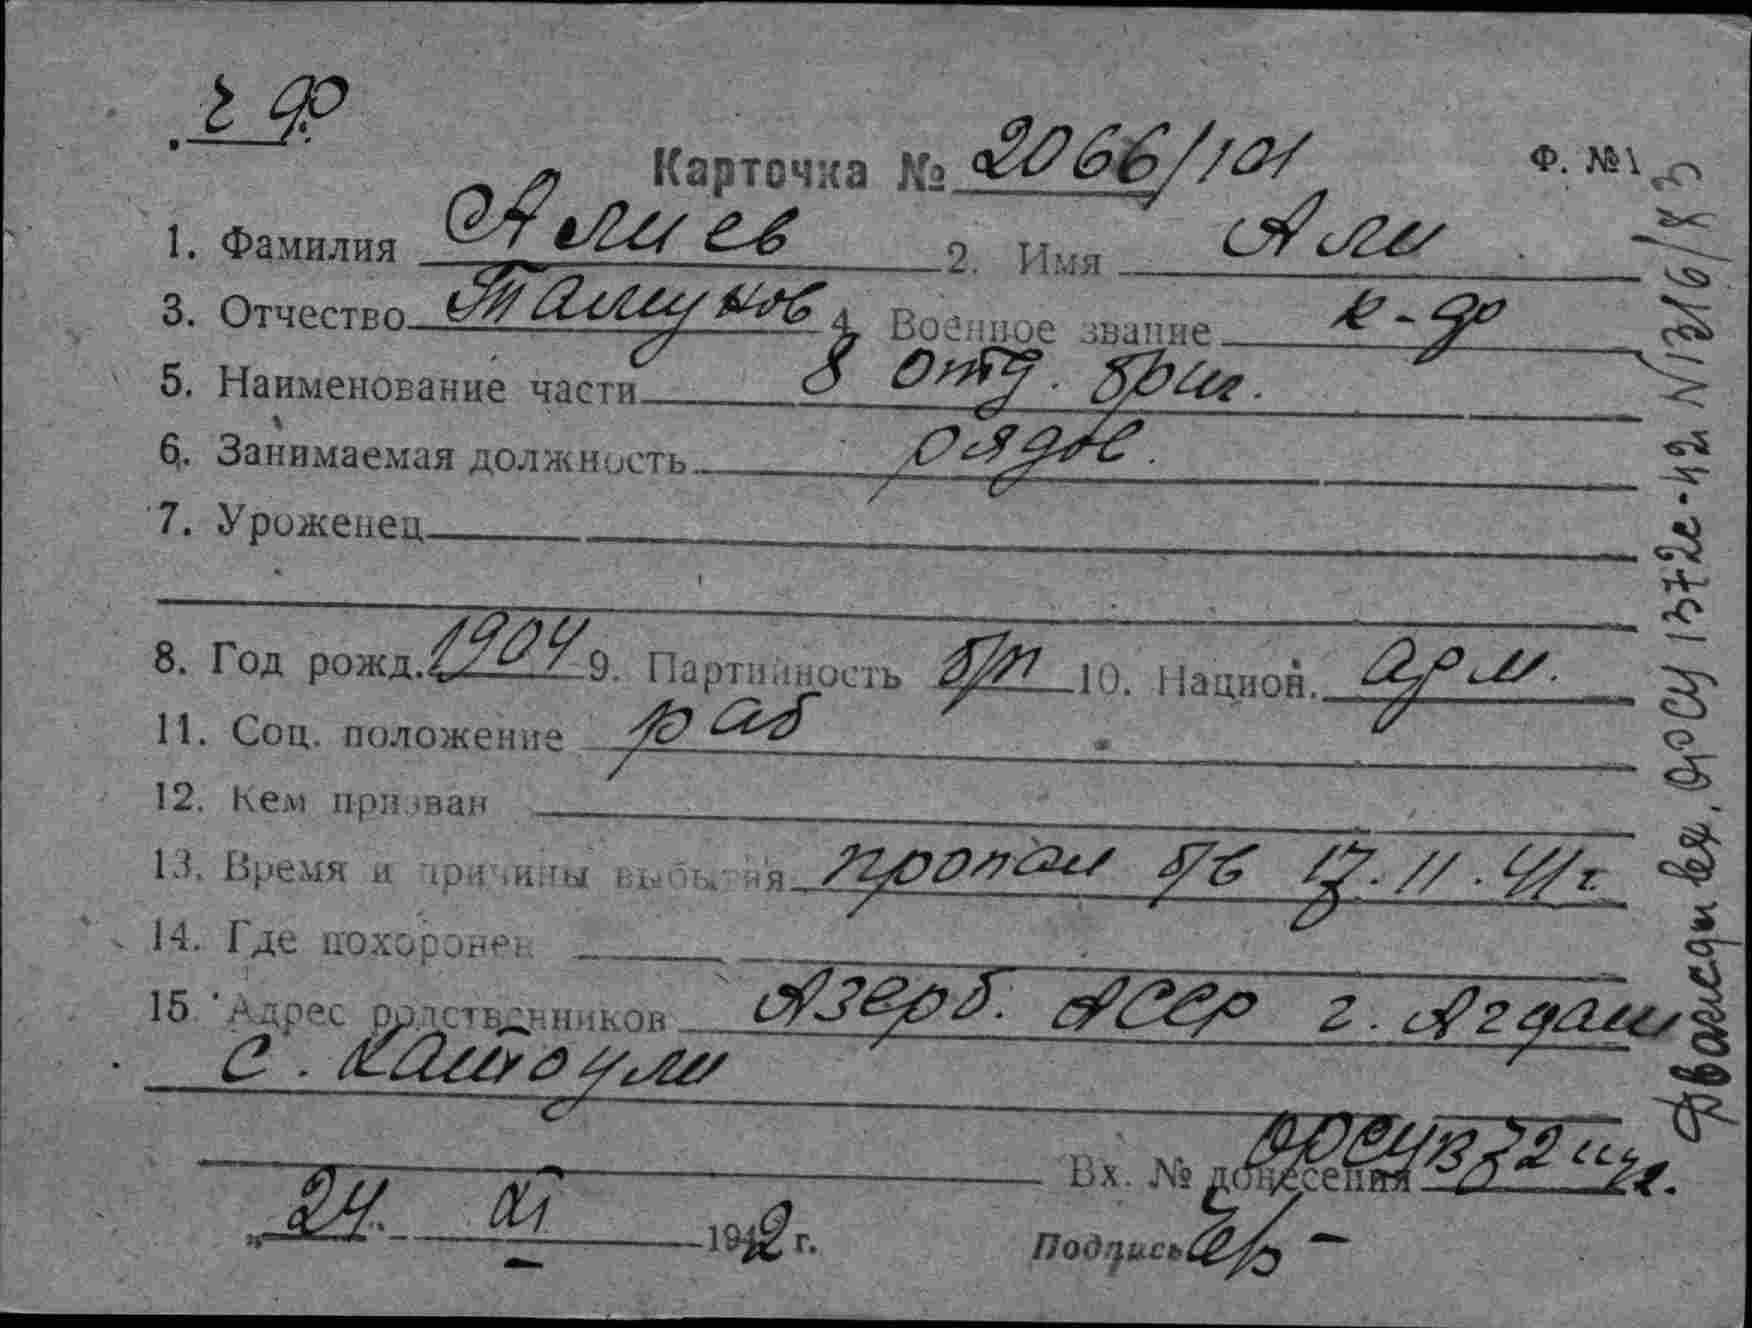 г ф
Карточка № 2066/101 Ф. №1
1. Фамилия Алиев 2. Имя Али
3. Отчество 4. Военное звание к-др
5. Наименование части 8 отд. бриг.
6. Занимаемая должность рядов.
7. Уроженец
8. Год рожд. 1904 9. Партийность б/п 10. Национ. арм.
11. Соц. положение раб
12. Кем призван
13. Время и причины выбытия пропал б/в 17.11.41г.
14. Где похоронен
15 Адрес родственников Азерб. АССР г. Агдаш
с.
Вх. № донесения
„24. XI 1942 г. Подпись